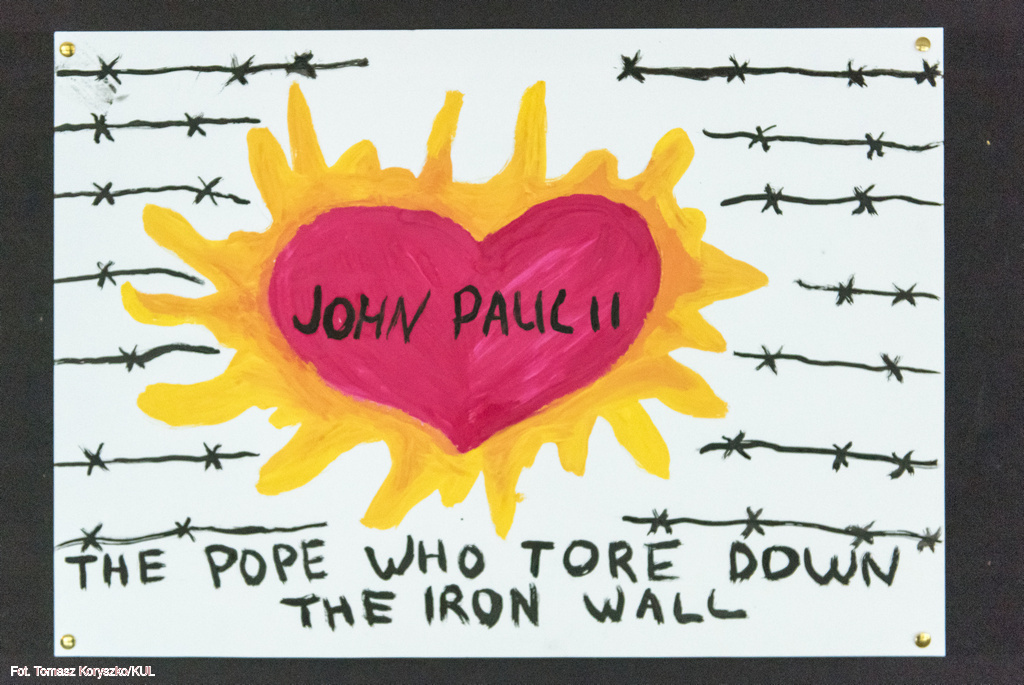 JOHN PAUL II
THE POPE WHO TORE DOWN
THE IRON WALL
Fot. Tomasz Koryszko/KUL